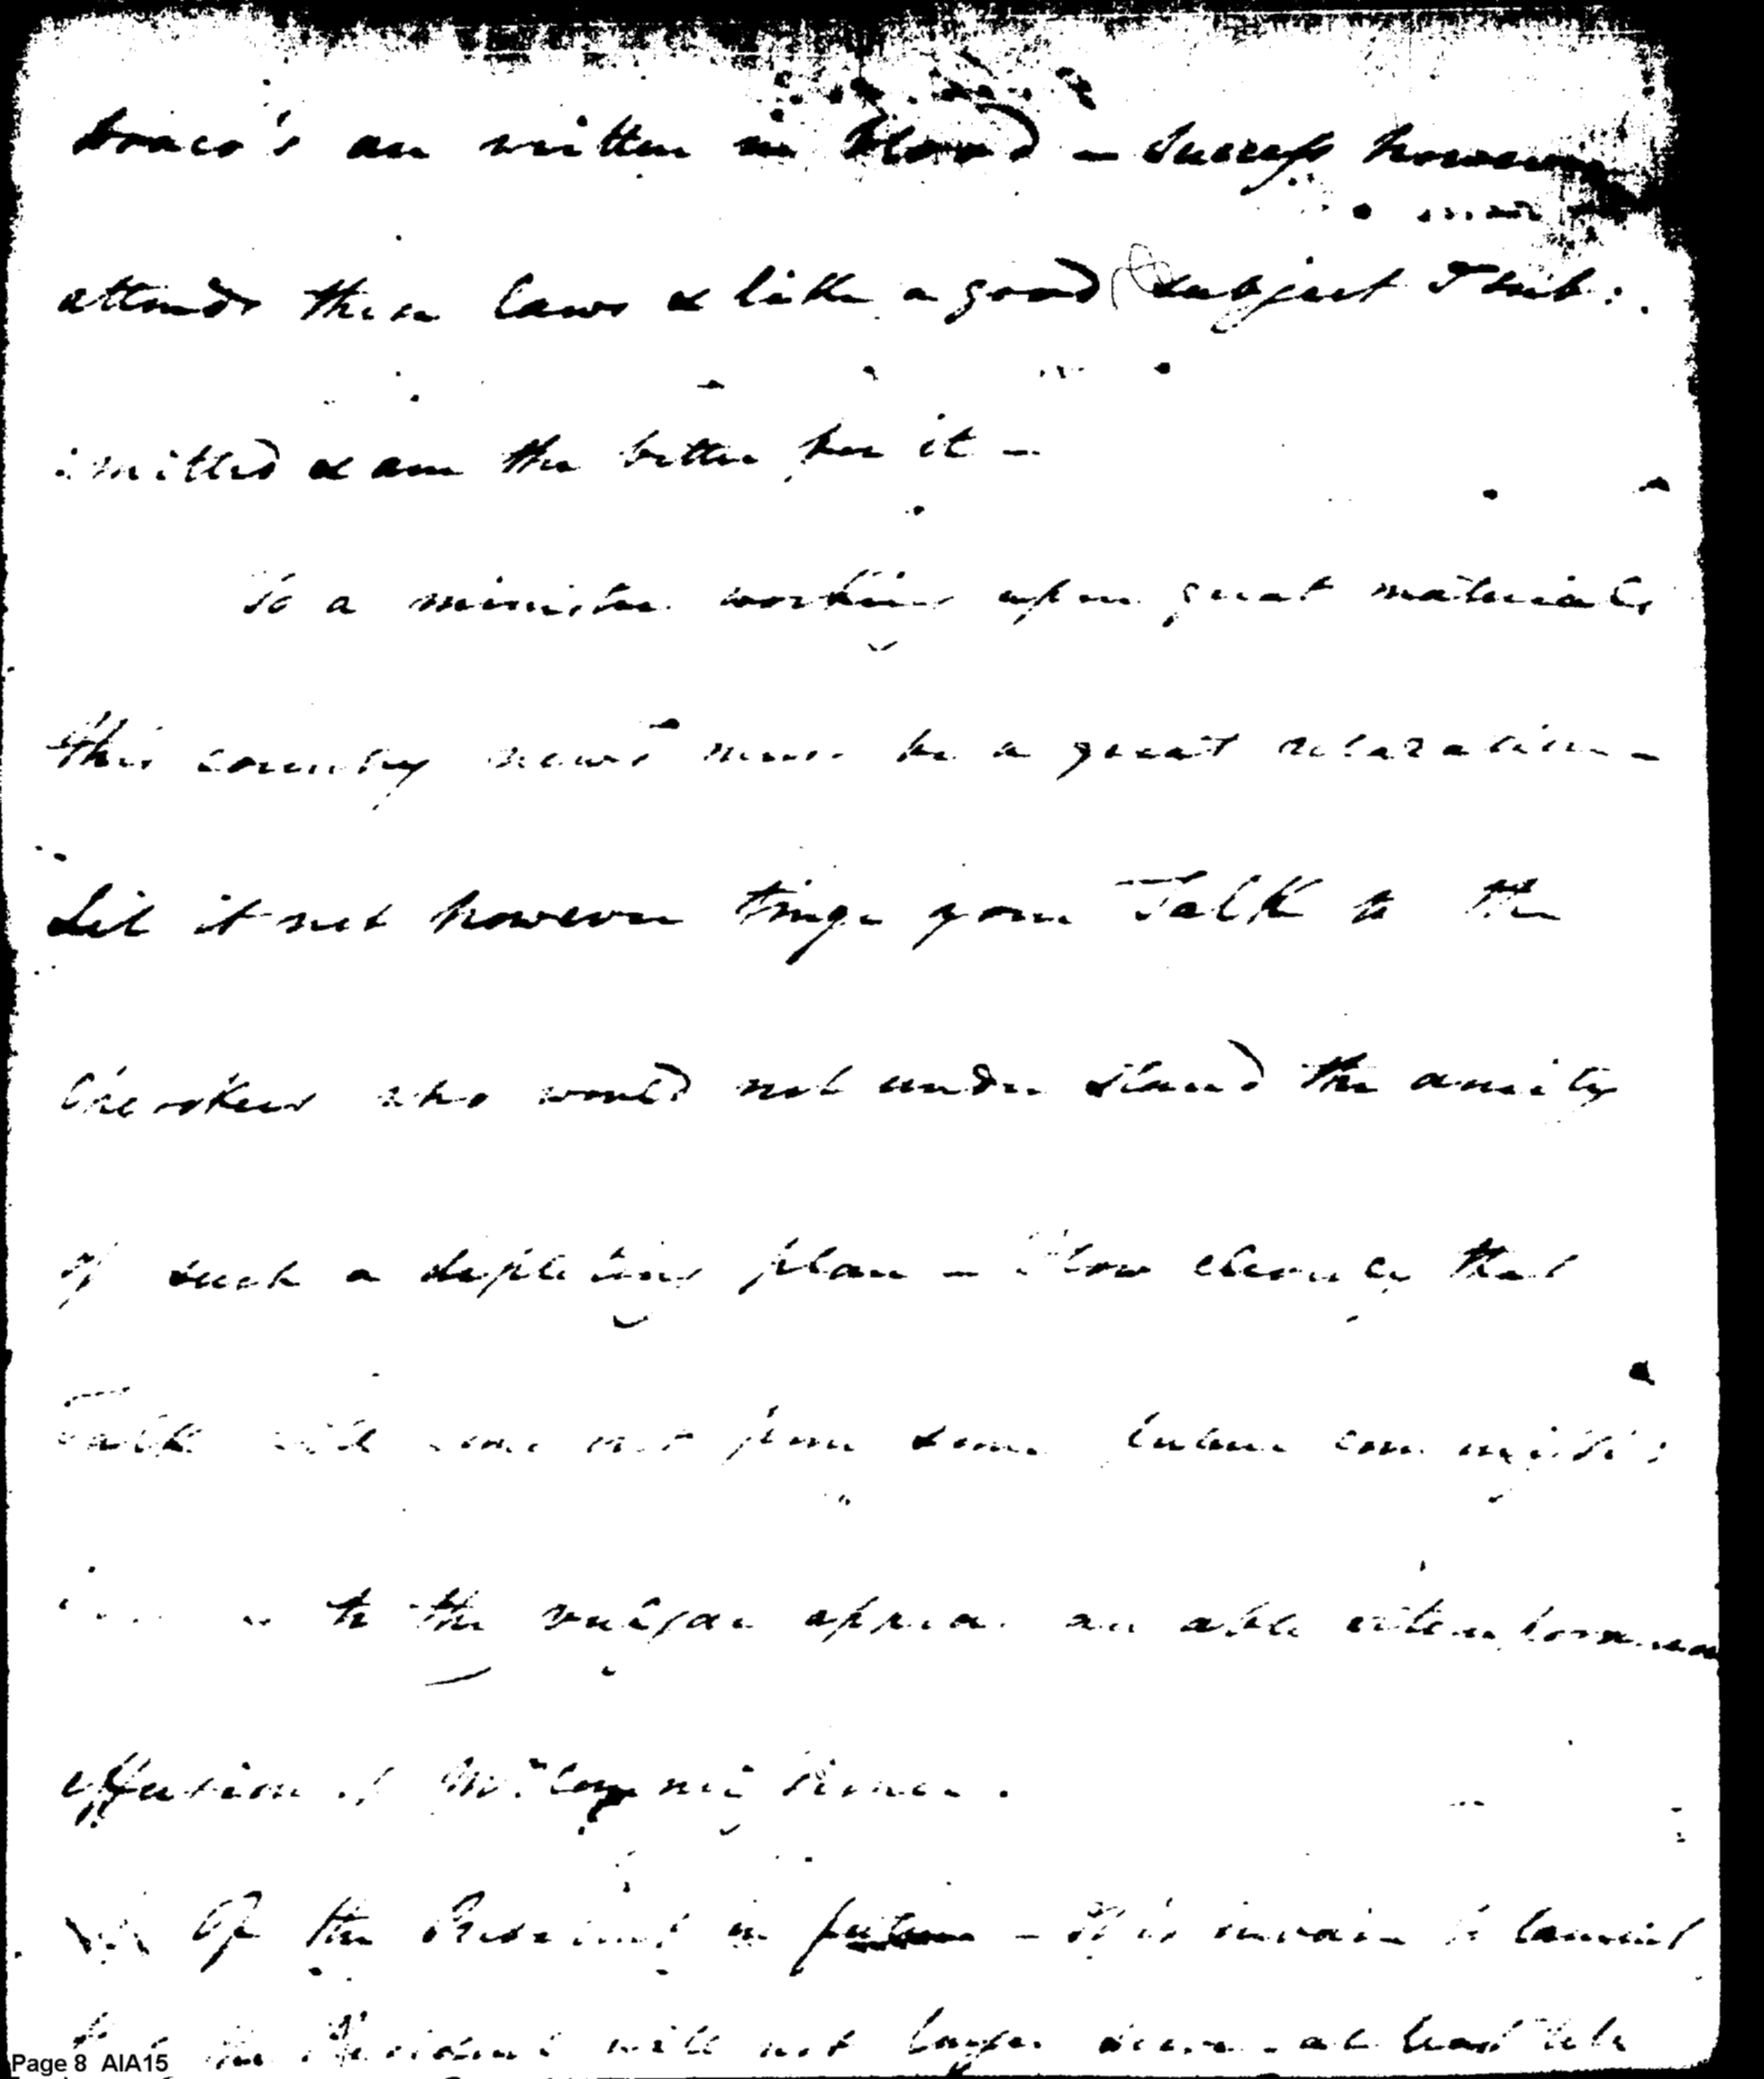 Draco's are written in blood – Success however
attends these laws & like a good subject I sub:
:mitted & am the better for it –
To a minister working upon great materials
this country news must be a great relaxation –
Let it not however tinge your Talk to the
Cherokees who would not under stand the amity
of such a depleting plan – How clearly that
Talk will come out from some future
to the vulgar appear an able extemporaneous
effusion of
Of the President in future – It is in vain to lament
that the President will not longer serve – at least
Page 8 AIA15